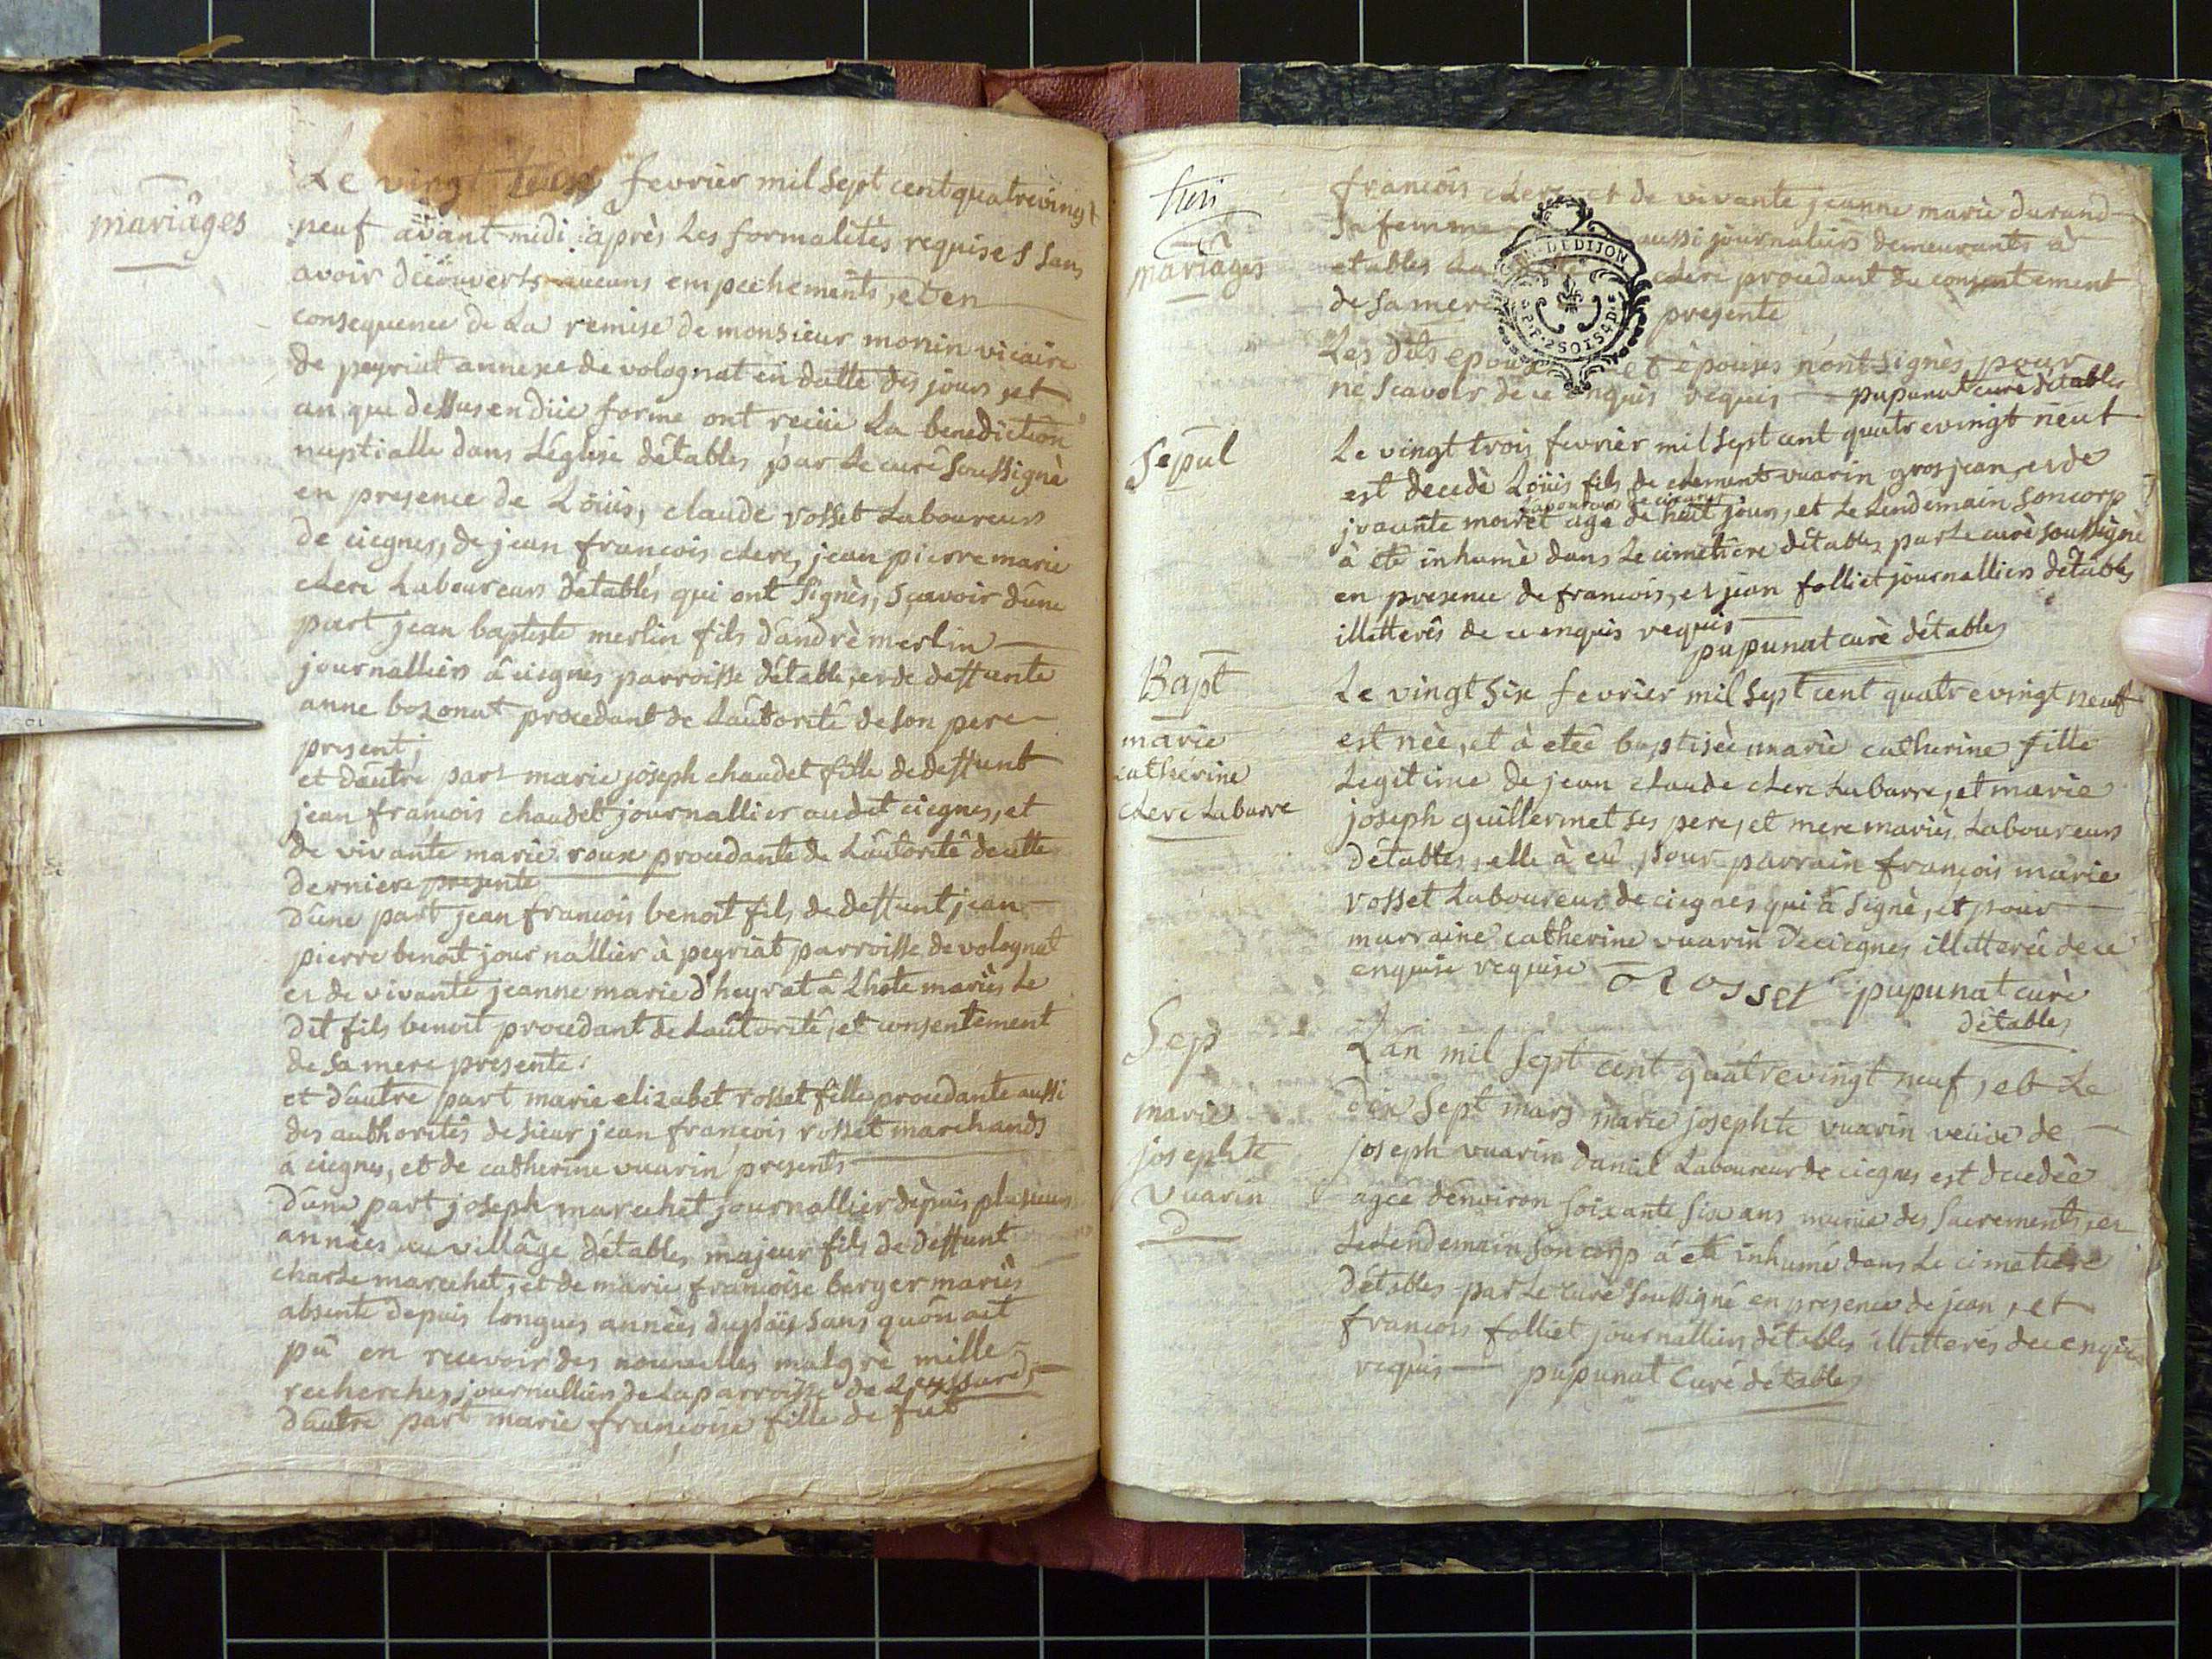 mariâges
Le vingt trois fevrier mil sept cent quatrevingt
neuf avant midi après Les formalités requises sans
avoir découverts aucuns empechements, et en
consequence de La remise de monsieur monin vicaire
de peyriat annexe de volognat en datte des jours, et
an que dessus en düe forme ont reçüe La benediction
nuptialle dans L'église d'étables par Le curé soussignè
en presence de Loüis, claude rosset Laboureurs
de ciegnes, de jean francois clerc, jean pierre marie
clerc Laboureurs d'étables qui ont signès, sçavoir d'une
part jean baptiste merlin fils d'andrè merlin
journalliers à ciegnes parroisse d'étable, et de deffunte
anne bozonat procedant de L'autorité de son pere
present;
et d'autre part marie joseph chaudet fille de deffunt
jean francois chaudet journallier audit ciegnes, et
de vivante marie roux procedante de L'autorité de cette
derniere presente
d'une part jean francois benoit fils de deffunt jean
pierre benoit journallier à peyriat parroisse de volognat
et de vivante jeanne marie d'heyrat à L'hote mariès Le
dit fils benoit procedant de L'autorité, et consentement
de sa mere presente.
et d'autre part marie elizabet rosset fille procedante aussi
des authorités de sieur jean françois rosset marchands
à ciegnes, et de catherine vuarin presents
d'une part joseph marechet journallier depuis plusieurs
années au villâge d'étables majeur fils de deffunt
charle marechet, et de marie françoise berger mariès
absente depuis longues années du païs sans qu'on ait
pû en recevoir des nouvelles malgrè mille
recherches, journalliers de La parroisse de
d'autre part marie françoise fille de fut
mariages
francois clerc et de vivante jeanne marie durand
sa femme aussi journaliers demeurants à
etables La clerc procedant du consentement
de sa mere presente
Les dits epoux et épouses n'ont signès pour
ne scavoir de ce enquis requis pupunat curé d'étables
Sepul
Le vingt trois fevrier mil sept cent quatrevingt neuf
est decedè Loüis fils de clement vuarin grosjean, et de
Laboureur de ciegnes
moiret agé de huit jours, et Le Lendemain son corp
à eté inhumè dans Le cimetière d'étables par Le curè soussignè
en presence de francois, et jean folliet journalliers d'étables
illitterés de ce enquis requis
pupunat curè d'étables
Bapt
marie
catherine
clerc Labarre
Le vingt six fevrier mil sept cent quatrevingt neuf
est nèe, et à etée baptisèe marie catherine fille
Legitime de jean claude clerc Labarre, et marie
joseph guillermet ses pere, et mere mariès Laboureurs
d'étables, elle à eû pour parrain françois marie
rosset Laboureur de ciegnes qui à signè, et pour
marraine catherine vuarin de ciegnes illitterée de ce
enquise requise Rosset pupunat curè
d'étables
Sep
marie
josephte
vuarin
D
L'an mil sept cent quatrevingt neuf, et Le
dix sept mars marie josephte vuarin veuve de
joseph vuarin daniel Laboureur de ciegnes est decedèe
agée d'environ soixante six ans munie des sacrements, et
Le Lendemain son corp à eté inhumé dans Le cimetiere
d'étables par Le curè soussigné en presence de jean, et
francois folliet journalliers d'étables illitterés de ce enquis
requis pupunat Curé d'étables
GEN. DE DIJON
P.P. 2 SOIS 4 D.